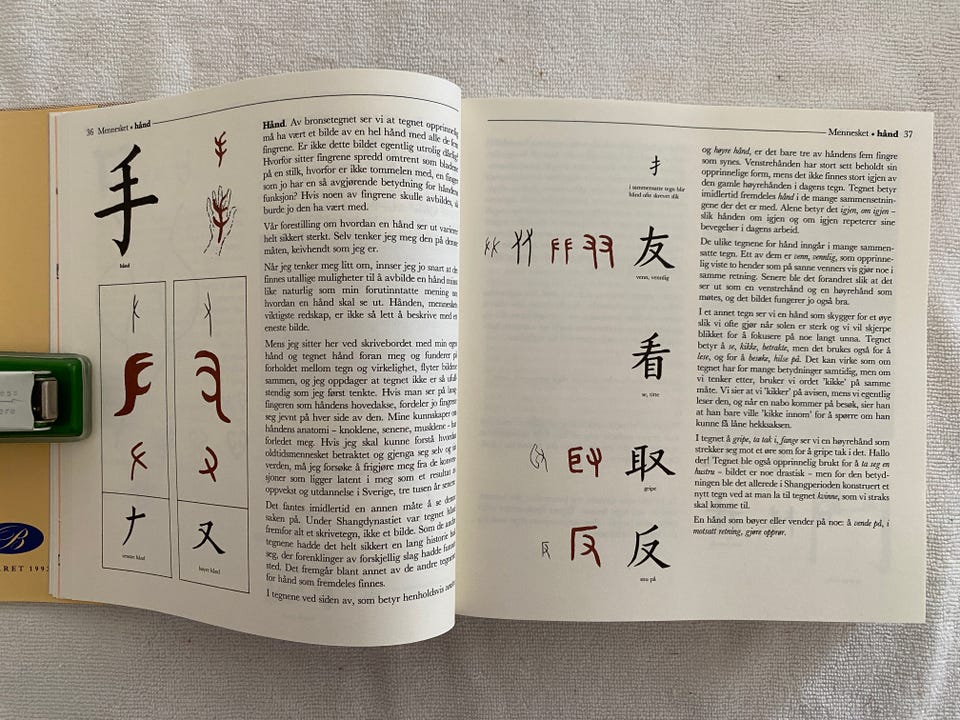 36 Mennesket • hånd
手
hånd
venstre hånd
høyre hånd
Hånd. Av bronsetegnet ser vi at tegnet opprinnelig
må ha vært et bilde av en hel hånd med alle de fem
fingrene. Er ikke dette bildet egentlig utrolig dårlig?
Hvorfor sitter fingrene spredd omtrent som bladene
på en stilk, hvorfor er ikke tommelen med, en finger
som jo har en så avgjørende betydning for håndens
funksjon? Hvis noen av fingrene skulle avbildes, så
burde jo den ha vært med.
Vår forestilling om hvordan en hånd ser ut varierer
helt sikkert sterkt. Selv tenker jeg meg den på denne
måten, keivhendt som jeg er.
Når jeg tenker meg litt om, innser jeg jo snart at det
finnes utallige muligheter til å avbilde en hånd minst
like naturlig som min forutinntatte mening om
hvordan en hånd skal se ut. Hånden, menneskets
viktigste redskap, er ikke så lett å beskrive med et
eneste bilde.
Mens jeg sitter her ved skrivebordet med min egen
hånd og tegnet hånd foran meg og funderer på
forholdet mellom tegn og virkelighet, flyter bildene
sammen, og jeg oppdager at tegnet ikke er så ufull-
stendig som jeg først tenkte. Hvis man ser på lang-
fingeren som håndens hovedakse, fordeler jo fingrene
seg jevnt på hver side av den. Mine kunnskaper om
håndens anatomi – knoklene, senene, musklene – har
forledet meg. Hvis jeg skal kunne forstå hvordan
oldtidsmennesket betraktet og gjenga seg selv og sin
verden, må jeg forsøke å frigjøre meg fra de konven-
sjoner som ligger latent i meg som et resultat av
oppvekst og utdannelse i Sverige, tre tusen år senere.
Det fantes imidlertid en annen måte å se denne
saken på. Under Shangdynastiet var tegnet hånd
fremfor alt et skrivetegn, ikke et bilde. Som de andre
tegnene hadde det helt sikkert en lang historie bak
seg, der forenklinger av forskjellig slag hadde funnet
sted. Det fremgår blant annet av de andre tegnene
for hånd som fremdeles finnes.
I tegnene ved siden av, som betyr henholdsvis venstre
Mennesket • hånd 37
扌
i sammensatte tegn blir
hånd ofte skrevet slik
友
venn, vennlig
看
se, titte
取
gripe
反
snu på
og høyre hånd, er det bare tre av håndens fem fingre
som synes. Venstrehånden har stort sett beholdt sin
opprinnelige form, mens det ikke finnes stort igjen av
den gamle høyrehånden i dagens tegn. Tegnet betyr
imidlertid fremdeles hånd i de mange sammensetnin-
gene der det er med. Alene betyr det igjen, om igjen –
slik hånden om igjen og om igjen repeterer sine
bevegelser i dagens arbeid.
De ulike tegnene for hånd inngår i mange sammen-
satte tegn. Ett av dem er venn, vennlig, som opprinne-
lig viste to hender som på sanne venners vis gjør noe i
samme retning. Senere ble det forandret slik at det
ser ut som en venstrehånd og en høyrehånd som
møtes, og det bildet fungerer jo også bra.
I et annet tegn ser vi en hånd som skygger for et øye
slik vi ofte gjør når solen er sterk og vi vil skjerpe
blikket for å fokusere på noe langt unna. Tegnet
betyr å se, kikke, betrakte, men det brukes også for å
lese, og for å besøke, hilse på. Det kan virke som om
tegnet har for mange betydninger samtidig, men om
vi tenker etter, bruker vi ordet 'kikke' på samme
måte. Vi sier at vi 'kikker' på avisen, mens vi egentlig
leser den, og når en nabo kommer på besøk, sier han
at han bare ville 'kikke innom' for å spørre om han
kunne få låne hekksaksen.
I tegnet å gripe, ta tak i, fange ser vi en høyrehånd som
strekker seg mot et øre som for å gripe tak i det. Hallo
der! Tegnet ble også opprinnelig brukt for å ta seg en
hustru – bildet er noe drastisk – men for den betyd-
ningen ble det allerede i Shangperioden konstruert et
nytt tegn ved at man la til tegnet kvinne, som vi straks
skal komme til.
En hånd som bøyer eller vender på noe: å vende på, i
motsatt retning, gjøre opprør.
B